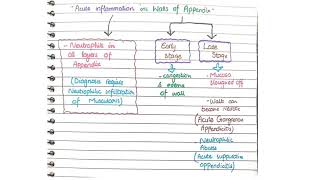 "Acute inflammation in Walls of Appendix"
- Neutrophils in
all layers of
Appendix
(Diagnosis require
Neutrophilic infiltration
of Muscularis)
Early
Stage
- congestion
& edema
of wall
Late
Stage
- Mucosa
sloughed off
- Walls can
become necrotic
(Acute Gangrenous
Appendicitis)
- Neutrophilic
Abscess
(Acute suppurative
appendicitis)